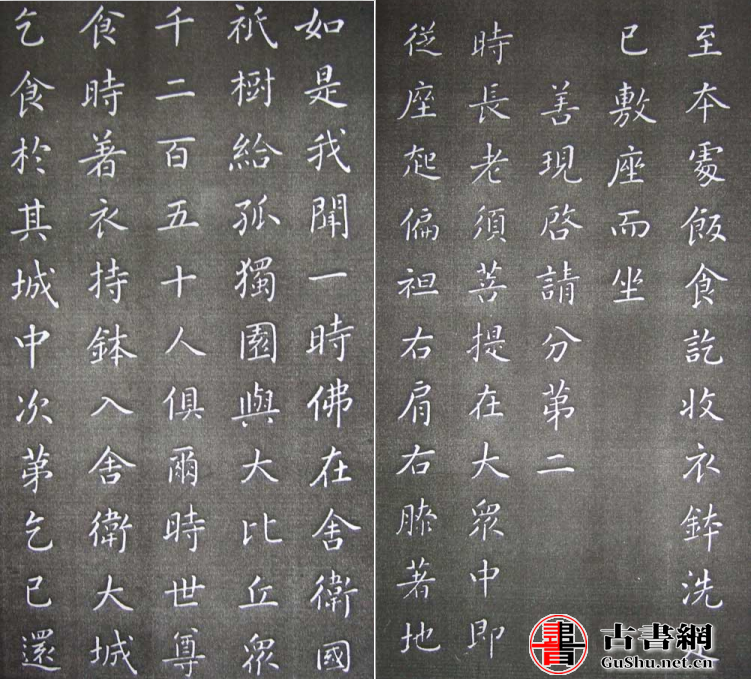 如是我聞一時佛在舍衛國
祇樹給孤獨園與大比丘眾
千二百五十人俱爾時世尊
食時著衣持鉢入舍衛大城
乞食於其城中次第乞已還
至本處飯食訖收衣鉢洗
已敷座而坐
善現啓請分第二
時長老須菩提在大眾中即
從座起偏袒右肩右膝著地
書
古書網
GuShu.net.cn